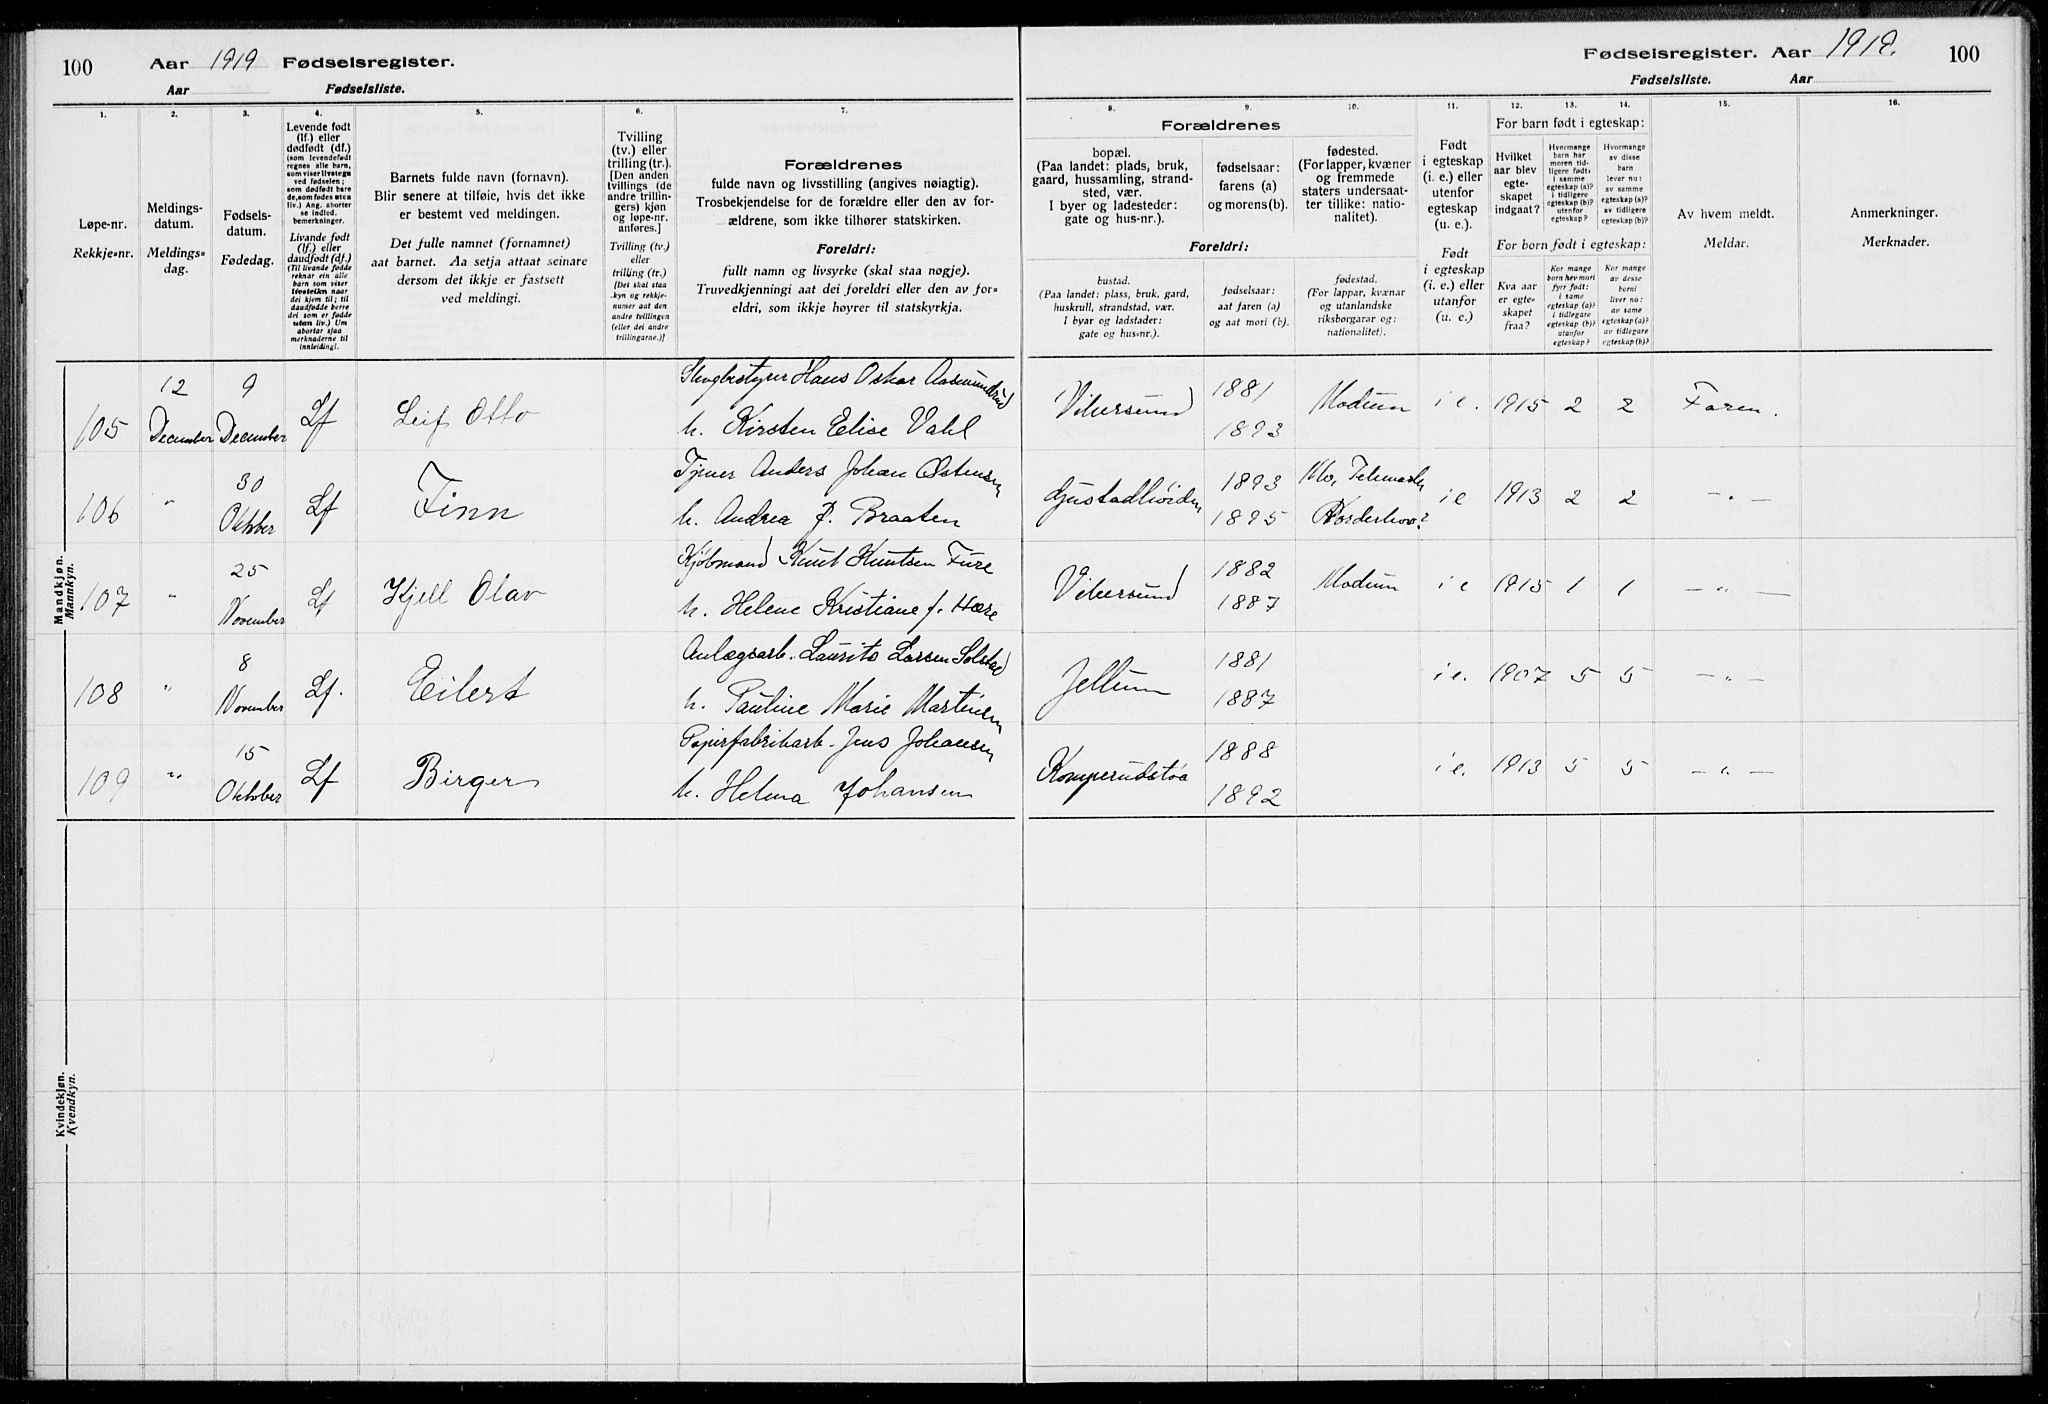 100 Aar 1919 Fødselsregister.
Aar Fødselsliste.
1. 2. 3. 4. 5. 6. 7.
Løpe-nr.
Rekkje-nr.
Meldings-
datum.
Meldings-
dag.
Fødsels-
datum.
Fødedag.
Levende født
(lf.) eller
dødfødt (df.)
(som levendefødt
regnes alle barn,
som viser livstegn
ved fødselen;
som dødfødt bare
de, som fødes uten
liv.) Ang. aborter
se indled.
bemerkninger.
Livande født
(lf.) eller
daudfødt (df.)
(Til livande fødde
reknar ein alle
barn som viser
livsteikn naar
dei kjem til; til
daudfødde berre
dei som er fødde
utan liv.) Um
abortar sjaa
merknaderne til
innleiding).
Barnets fulde navn (fornavn).
Blir senere at tilføie, hvis det ikke
er bestemt ved meldingen.
Det fulle namnet (fornamnet)
aat barnet. Aa setja attaat seinare
dersom det ikkje er fastsett
ved meldingi.
Tvilling
(tv.) eller
trilling (tr.).
[Den anden
tvillings (de
andre trillin-
gers) kjøn
og løpe-nr.
anføres.]
Tvilling (tv.)
eller
trilling (tr.)
[Det skal staa
kyn og rekkje-
numer aat den
andre tvillingen
(eller dei andre
trillingarne.)]
Forældrenes
fulde navn og livsstilling (angives nøiagtig).
Trosbekjendelse for de forældre eller den av for-
ældrene, som ikke tilhører statskirken.
Foreldri:
fullt namn og livsyrke (skal staa nøgje).
Truvedkjenningi aat dei foreldri eller den av for-
eldri, som ikkje høyrer til statskyrkja.
Mandkjøn.
Mannkyn.
105
12
December
9
December
Lf
Leif Otto
Skogbestyrer Hans Oskar Aasmundrud
h. Kirsten Elise Vahl
106
"
30
Oktober
Lf
Finn
Tjener Anders Johan Østensen
h. Andrea f. Braaten
107
"
25
November
Lf
Kjell Olav
Kjøbmand Knut Knutsen Fure
h. Helene Kristiane f. Hære
108
"
8
November
Lf.
Eilert
Anlægsarb. Laurits Larsen Solstad
h. Pauline Marie Martinsen
109
"
15
Oktober
Lf
Birger
Papirfabrikarb. Jens Johansen
h. Helma Johansen
Kvindekjøn.
Kvendkyn.
Fødselsregister. Aar 1919. 100
Fødselsliste. Aar
8. 9. 10. 11. 12. 13. 14. 15. 16.
Forældrenes
bopæl.
(Paa landet: plads, bruk,
gaard, hussamling, strand-
sted, vær.
I byer og ladesteder:
gate og hus-nr.).
fødselsaar:
farens (a)
og morens(b).
fødested.
(For lapper, kvæner
og fremmede
staters undersaat-
ter tillike: natio-
nalitet).
Foreldri:
bustad.
(Paa landet: plass, bruk, gard,
huskrull, strandstad, vær.
I byar og ladstader:
gate og hus-nr.).
fødselsaar:
aat faren (a)
og aat mori (b).
fødestad.
(For lappar, kvænar
og utanlandske
riksborgarar og:
nationalitet).
Født
i egteskap
(i. e.) eller
utenfor
egteskap
(u. e.).
Født
i egteskap
(i. e.) eller
utanfor
(u. e.)
For barn født i egteskap:
Hvilket
aar blev
egte-
skapet
indgaat?
Hvormange
barn har
moren tid-
ligere født:
i samme
egteskap (a)?
i tidligere
egteskap (b)?
utenfor
egteskap?
Hvormange
av disse
barn
lever nu:
av samme
egteskap (a)?
av tidligere
egteskap (b)?
For born født i egteskap:
Kva aar
er egte-
skapet
fraa?
Kor mange
born hev mori
fyrr født:
i same
egteskap (a)?
i tidlegare
egteskap (b)?
utanfor
egteskap?
Kor mange
av desse
borni
liver no:
av same
egteskap (a)?
av tidlegare
egteskap (b)?
Av hvem meldt.
Meldar.
Anmerkninger.
Merknader.
Vikersund
1881
1893
Modum
i e.
1915
2
2
Faren.
Gustadhøiden
1893
1895
Mo, Telemarken
Norderhov?
i e
1913
2
2
— " —
Vikersund
1882
1887
Modum
i e
1915
1
1
— " —
Jellum
1881
1887
i e.
1907
5
5
— " —
Komperudstøa
1888
1892
i e.
1913
5
5
— " —